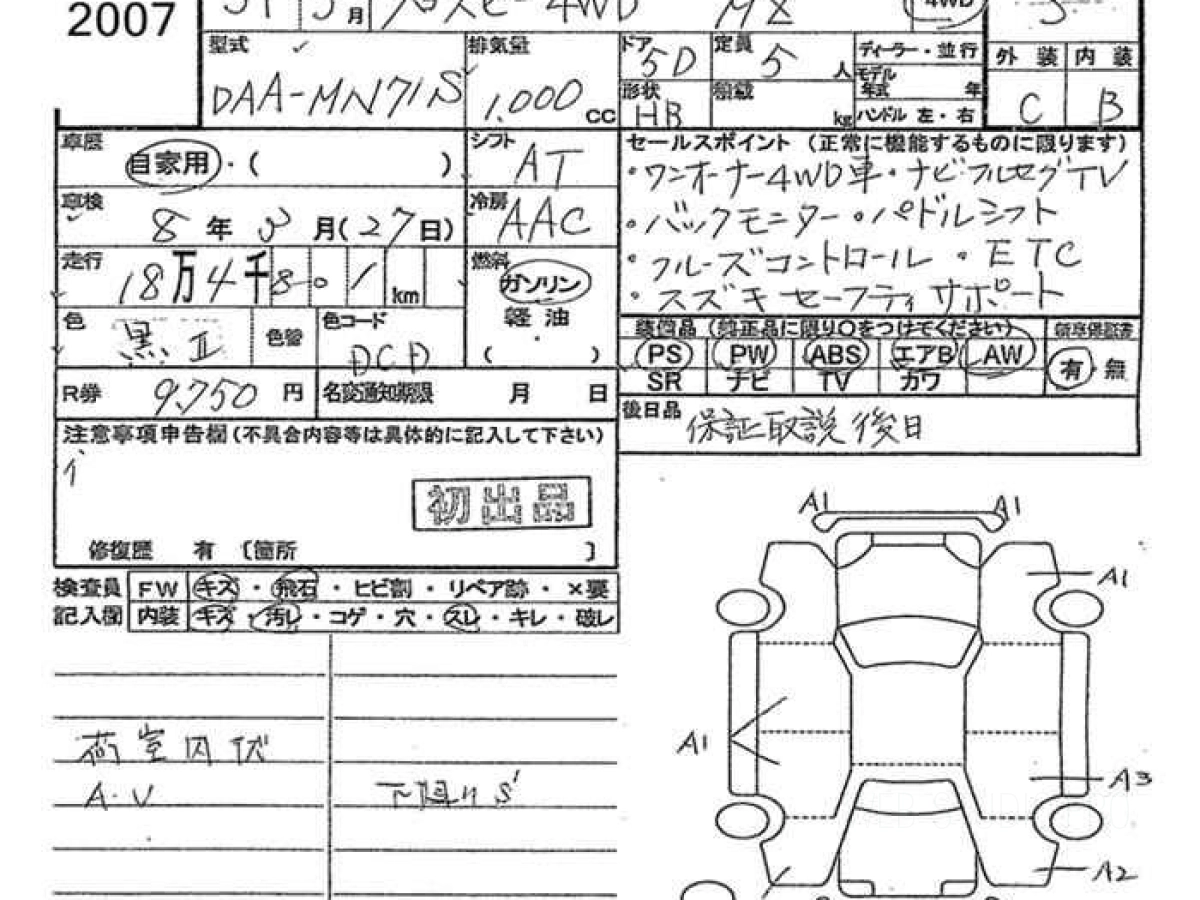 2007 月 4WD MZ 4WD
型式 排気量 ドア 5D 定員 5人 ディーラー・並行 外装 内装
DAA-MN71S 1,000 cc 形状 HB 積載 kg モデル年式 年 ハンドル 左・右 C B
車歴 自家用・( ) シフト AT
セールスポイント (正常に機能するものに限ります)
・ワンオーナー4WD車・ナビフルセグTV
車検 8年3月(27日) 冷房 AAC
・バックモニター・パドルシフト
走行 18万4千801km 燃料 ガソリン 軽油 ( )
・クルーズコントロール・ETC
・スズキセーフティサポート
色 黒Ⅱ 色替 色コード
装備品 (純正品に限り○をつけてください) 新車保証書
PS PW ABS エアB AW 有・無
SR ナビ TV カワ
R券 9,750円 名変通知期限 月 日
後日品 保証取説後日
注意事項申告欄(不具合内容等は具体的に記入して下さい)
初出品
修復歴 有 〔箇所 〕
検査員 FW キズ・飛石・ヒビ割・リペア跡・×要
記入欄 内装 キズ・汚レ・コゲ・穴・スレ・キレ・破レ
A1 A1
A1
A1
A3
A2
荷室内
A・V
下廻りS